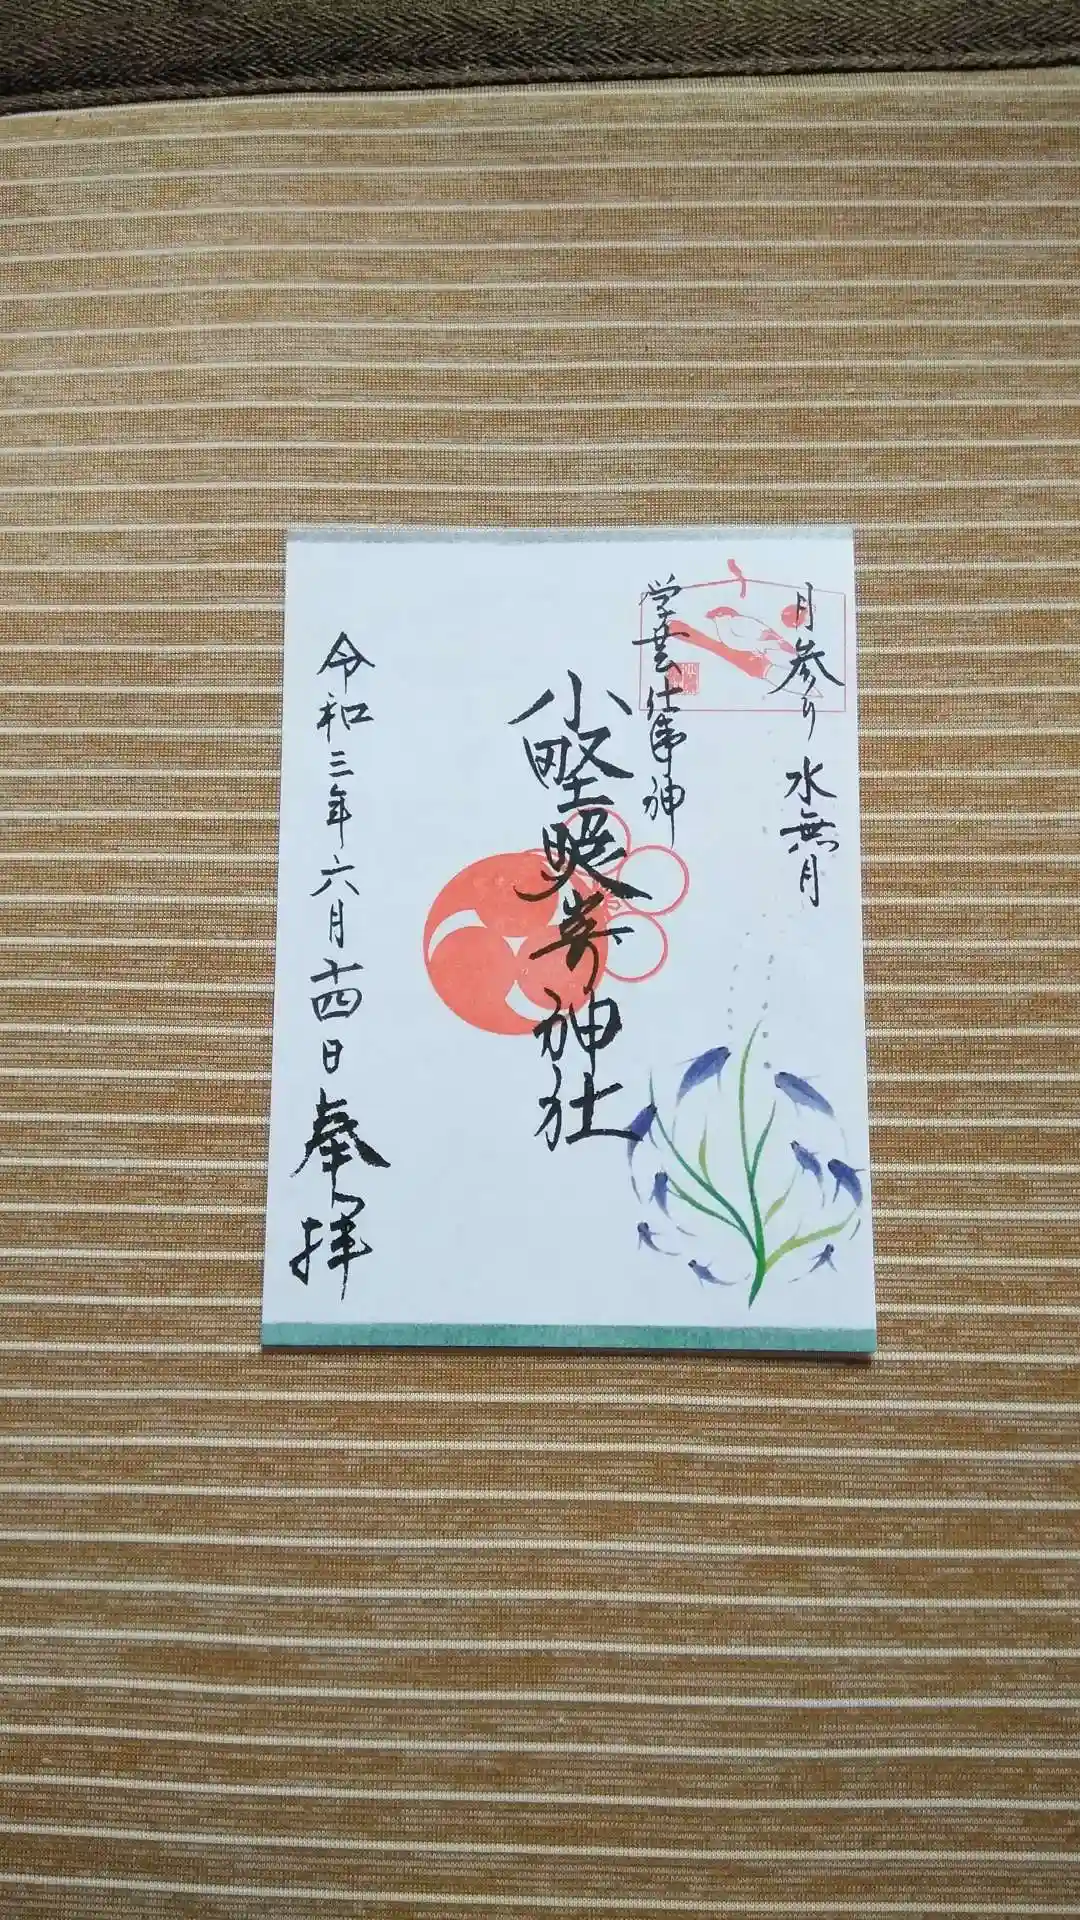 月参り 水無月
学芸仕事神
小野照崎神社
令和三年六月十四日 奉拝